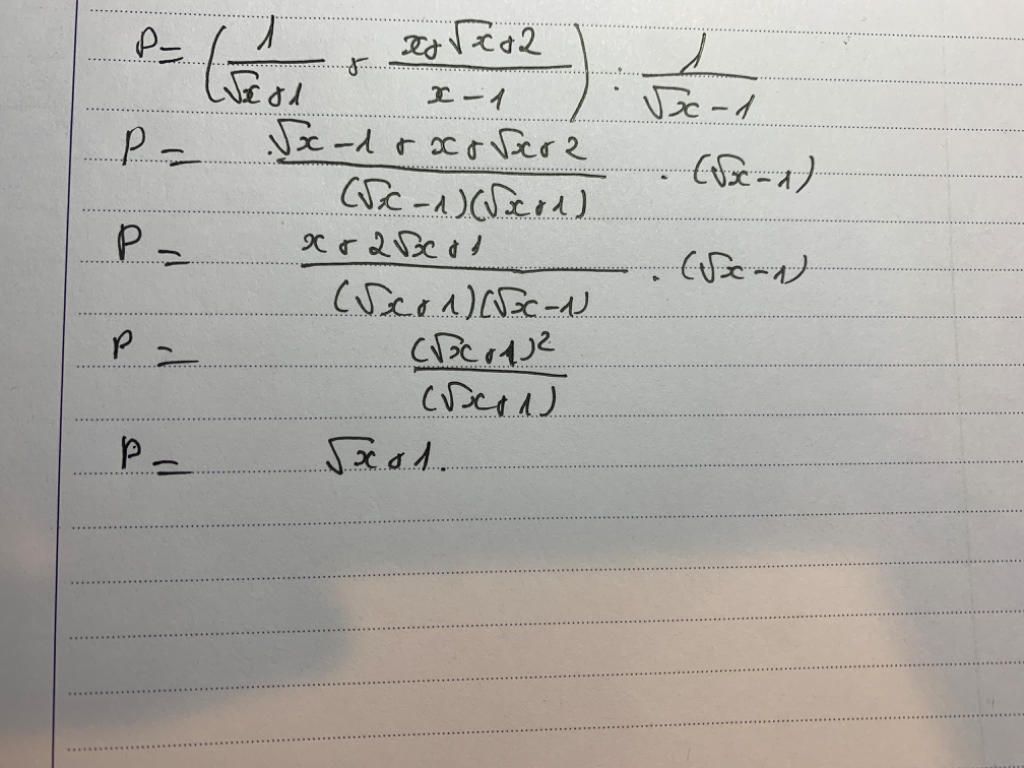 P = (1/(√x+1) + (x+√x+2)/(x-1)) : 1/(√x-1)
P = (√x-1+x+√x+2)/((√x-1)(√x+1)) . (√x-1)
P = (x+2√x+1)/((√x+1)(√x-1)) . (√x-1)
P = (√x+1)²/(√x+1)
P = √x+1.